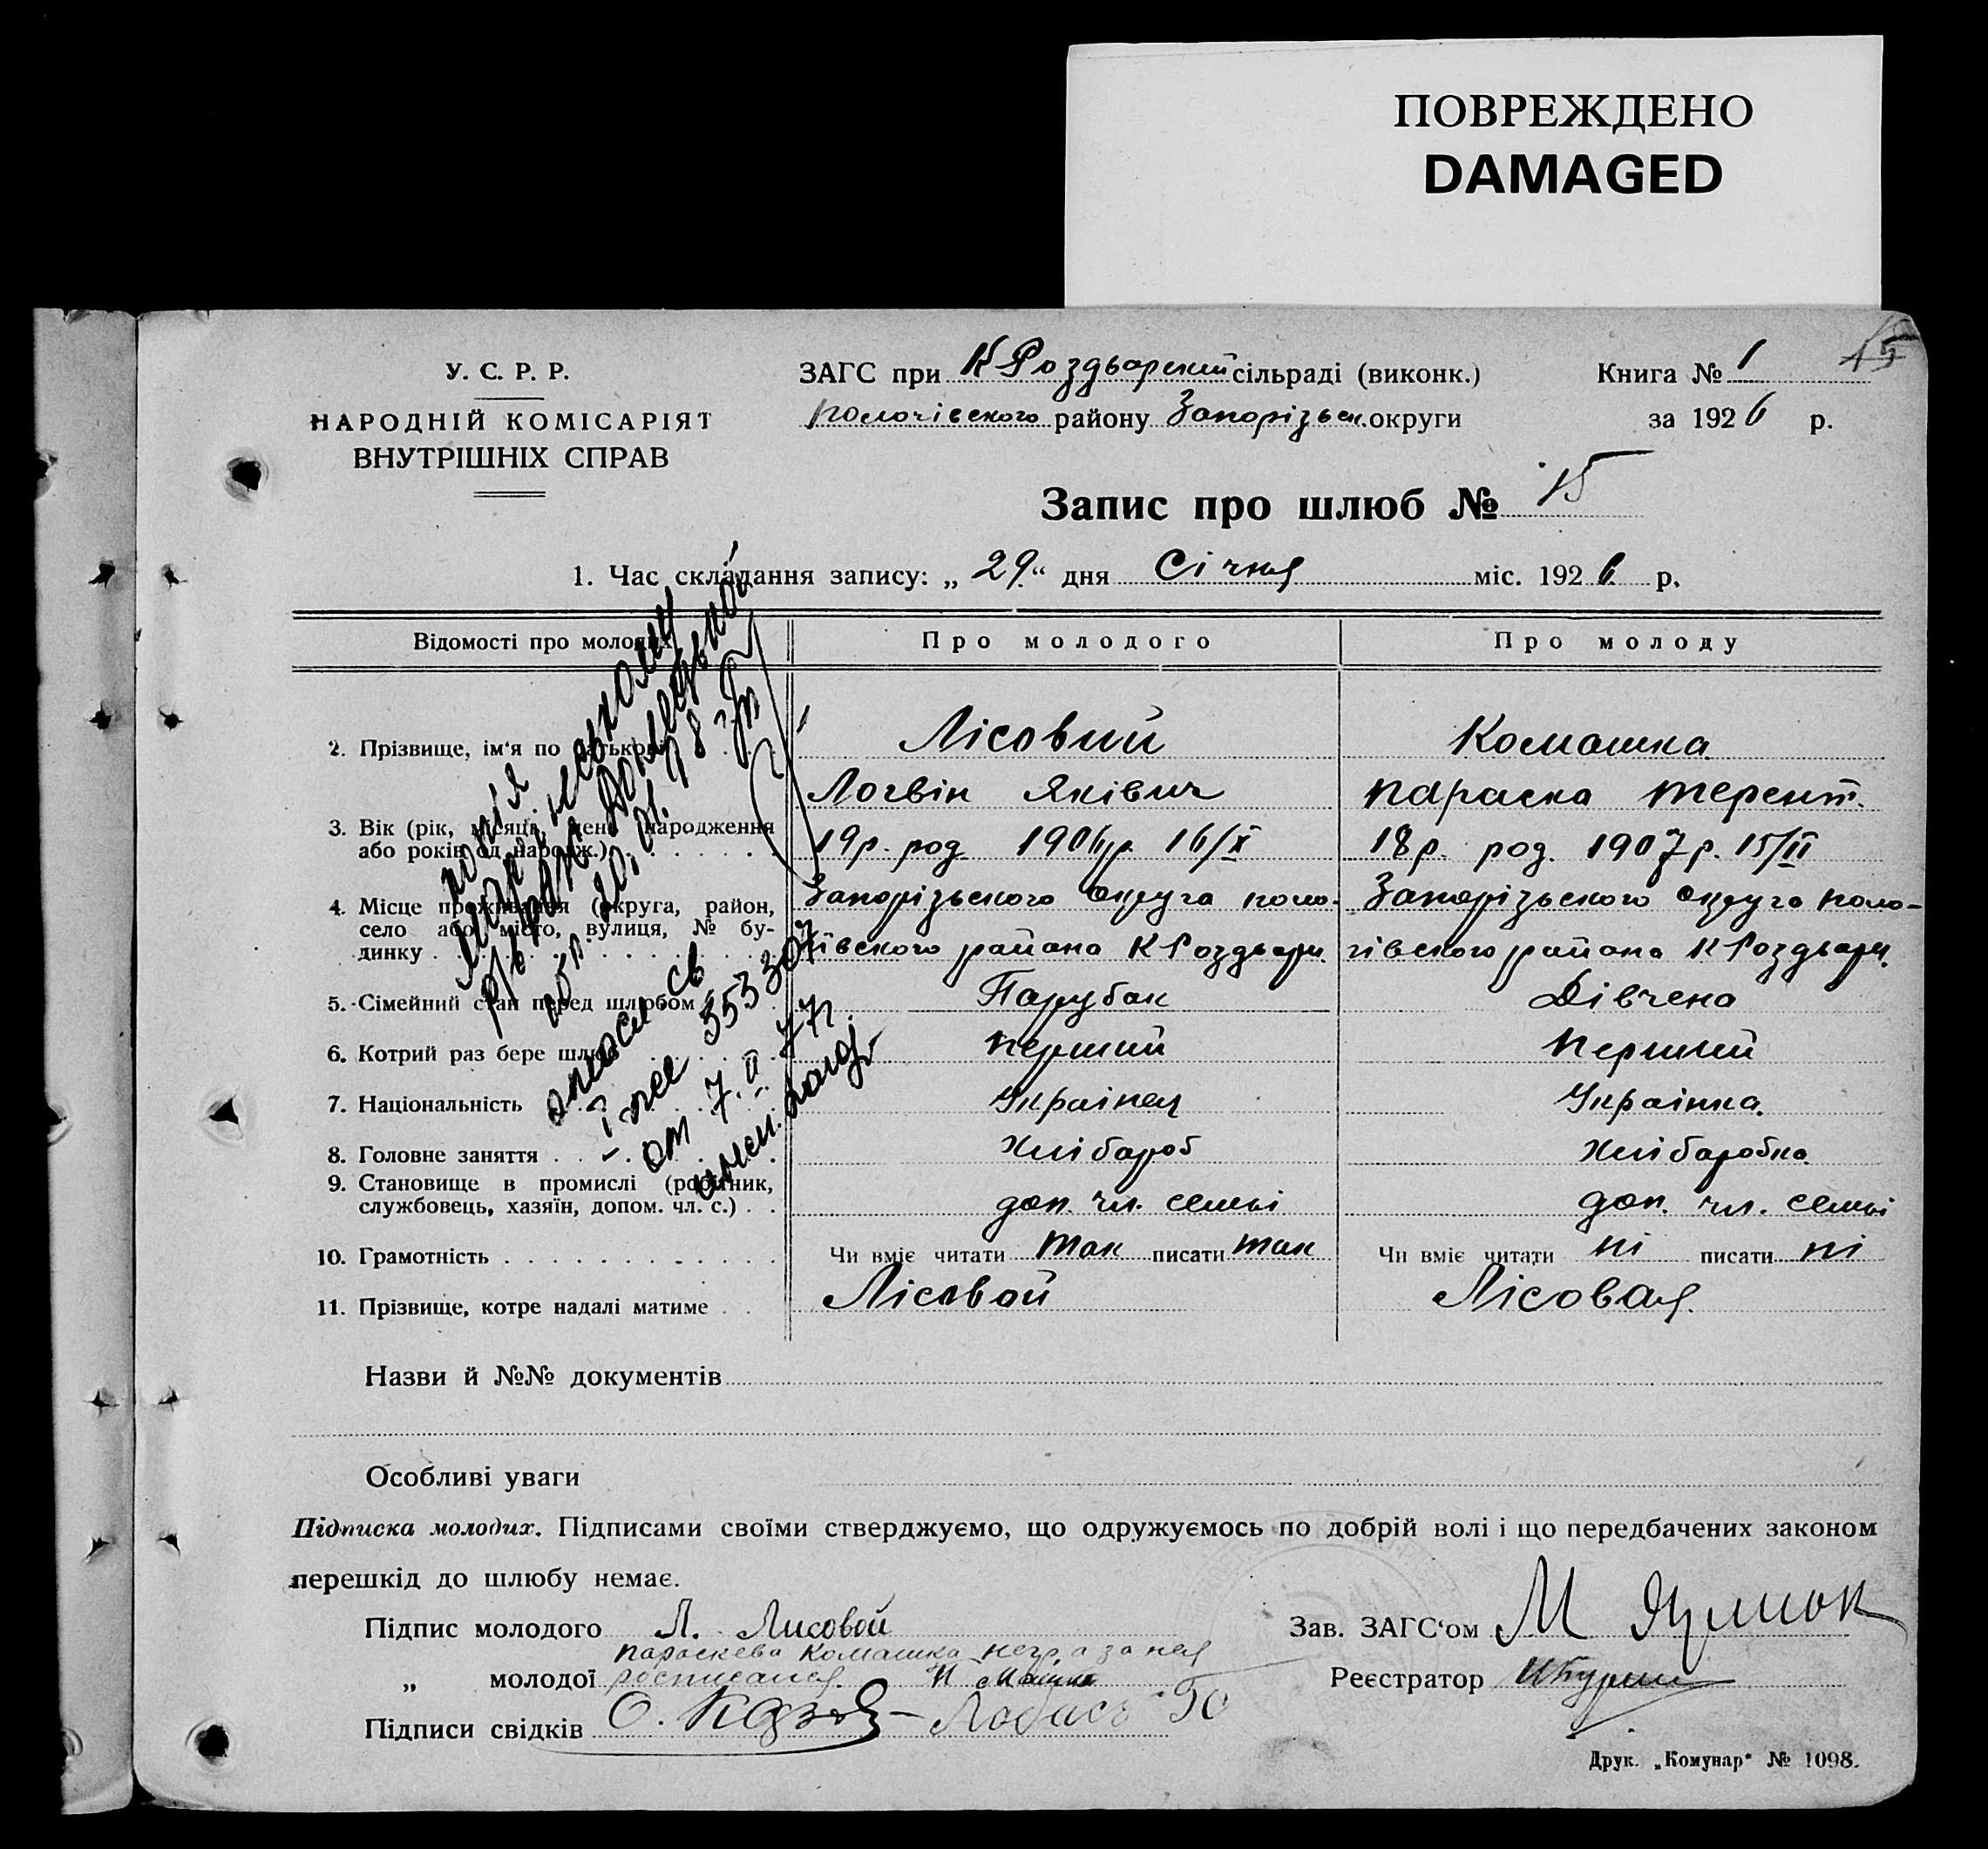 ПОВРЕЖДЕНО
DAMAGED
У. С. Р. Р.
НАРОДНІЙ КОМІСАРІЯТ
ВНУТРІШНІХ СПРАВ
ЗАГС при К Роздьорский сільраді (виконк.)
пологівского району Запорізьк. округи
Книга № 1
15
за 1926 р.
Запис про шлюб № 15
1. Час складання запису: „29“ дня Січня міс. 1926 р.
Відомості про молодих
Про молодого
Про молоду
2. Прізвище, ім‘я по батькові
Лісовий
Логвін Яківич
Комашка
параска терент.
3. Вік (рік, місяць, день народження
або років од народж.)
19 р. род. 1906 р. 16/X
18 р. род. 1907 р. 15/II
4. Місце проживання (округа, район,
село або місто, вулиця, № бу-
динку
Запорізьского Округа поло-
гівского района К Роздьори.
Запорізьского Округа поло-
гівского района К Роздьори.
5. Сімейний стан перед шлюбом
Парубак
Дівчена
6. Котрий раз бере шлюб
перший
перший
7. Національність
Українец
Українка.
8. Головне заняття
Хлібароб
Хлібаробка.
9. Становище в промислі (робітник,
службовець, хазяїн, допом. чл. с.)
доп. чл. семьі
доп. чл. семьі
10. Грамотність
Чи вміє читати так писати так
Чи вміє читати ні писати ні
11. Прізвище, котре надалі матиме
Лісовой
Лісовая.
553307
от 7. II 77г.
Назви й №№ документів
Особливі уваги
Підписка молодих. Підписами своїми стверджуємо, що одружуємось по добрій волі і що передбачених законом
перешкід до шлюбу немає.
Підпис молодого Л. Лисовой
параскева Комашка негр а за нея
„ молодої росписался.
Підписи свідків
Зав. ЗАГС‘ом М
Реєстратор
Друк. „Комунар“ № 1098.